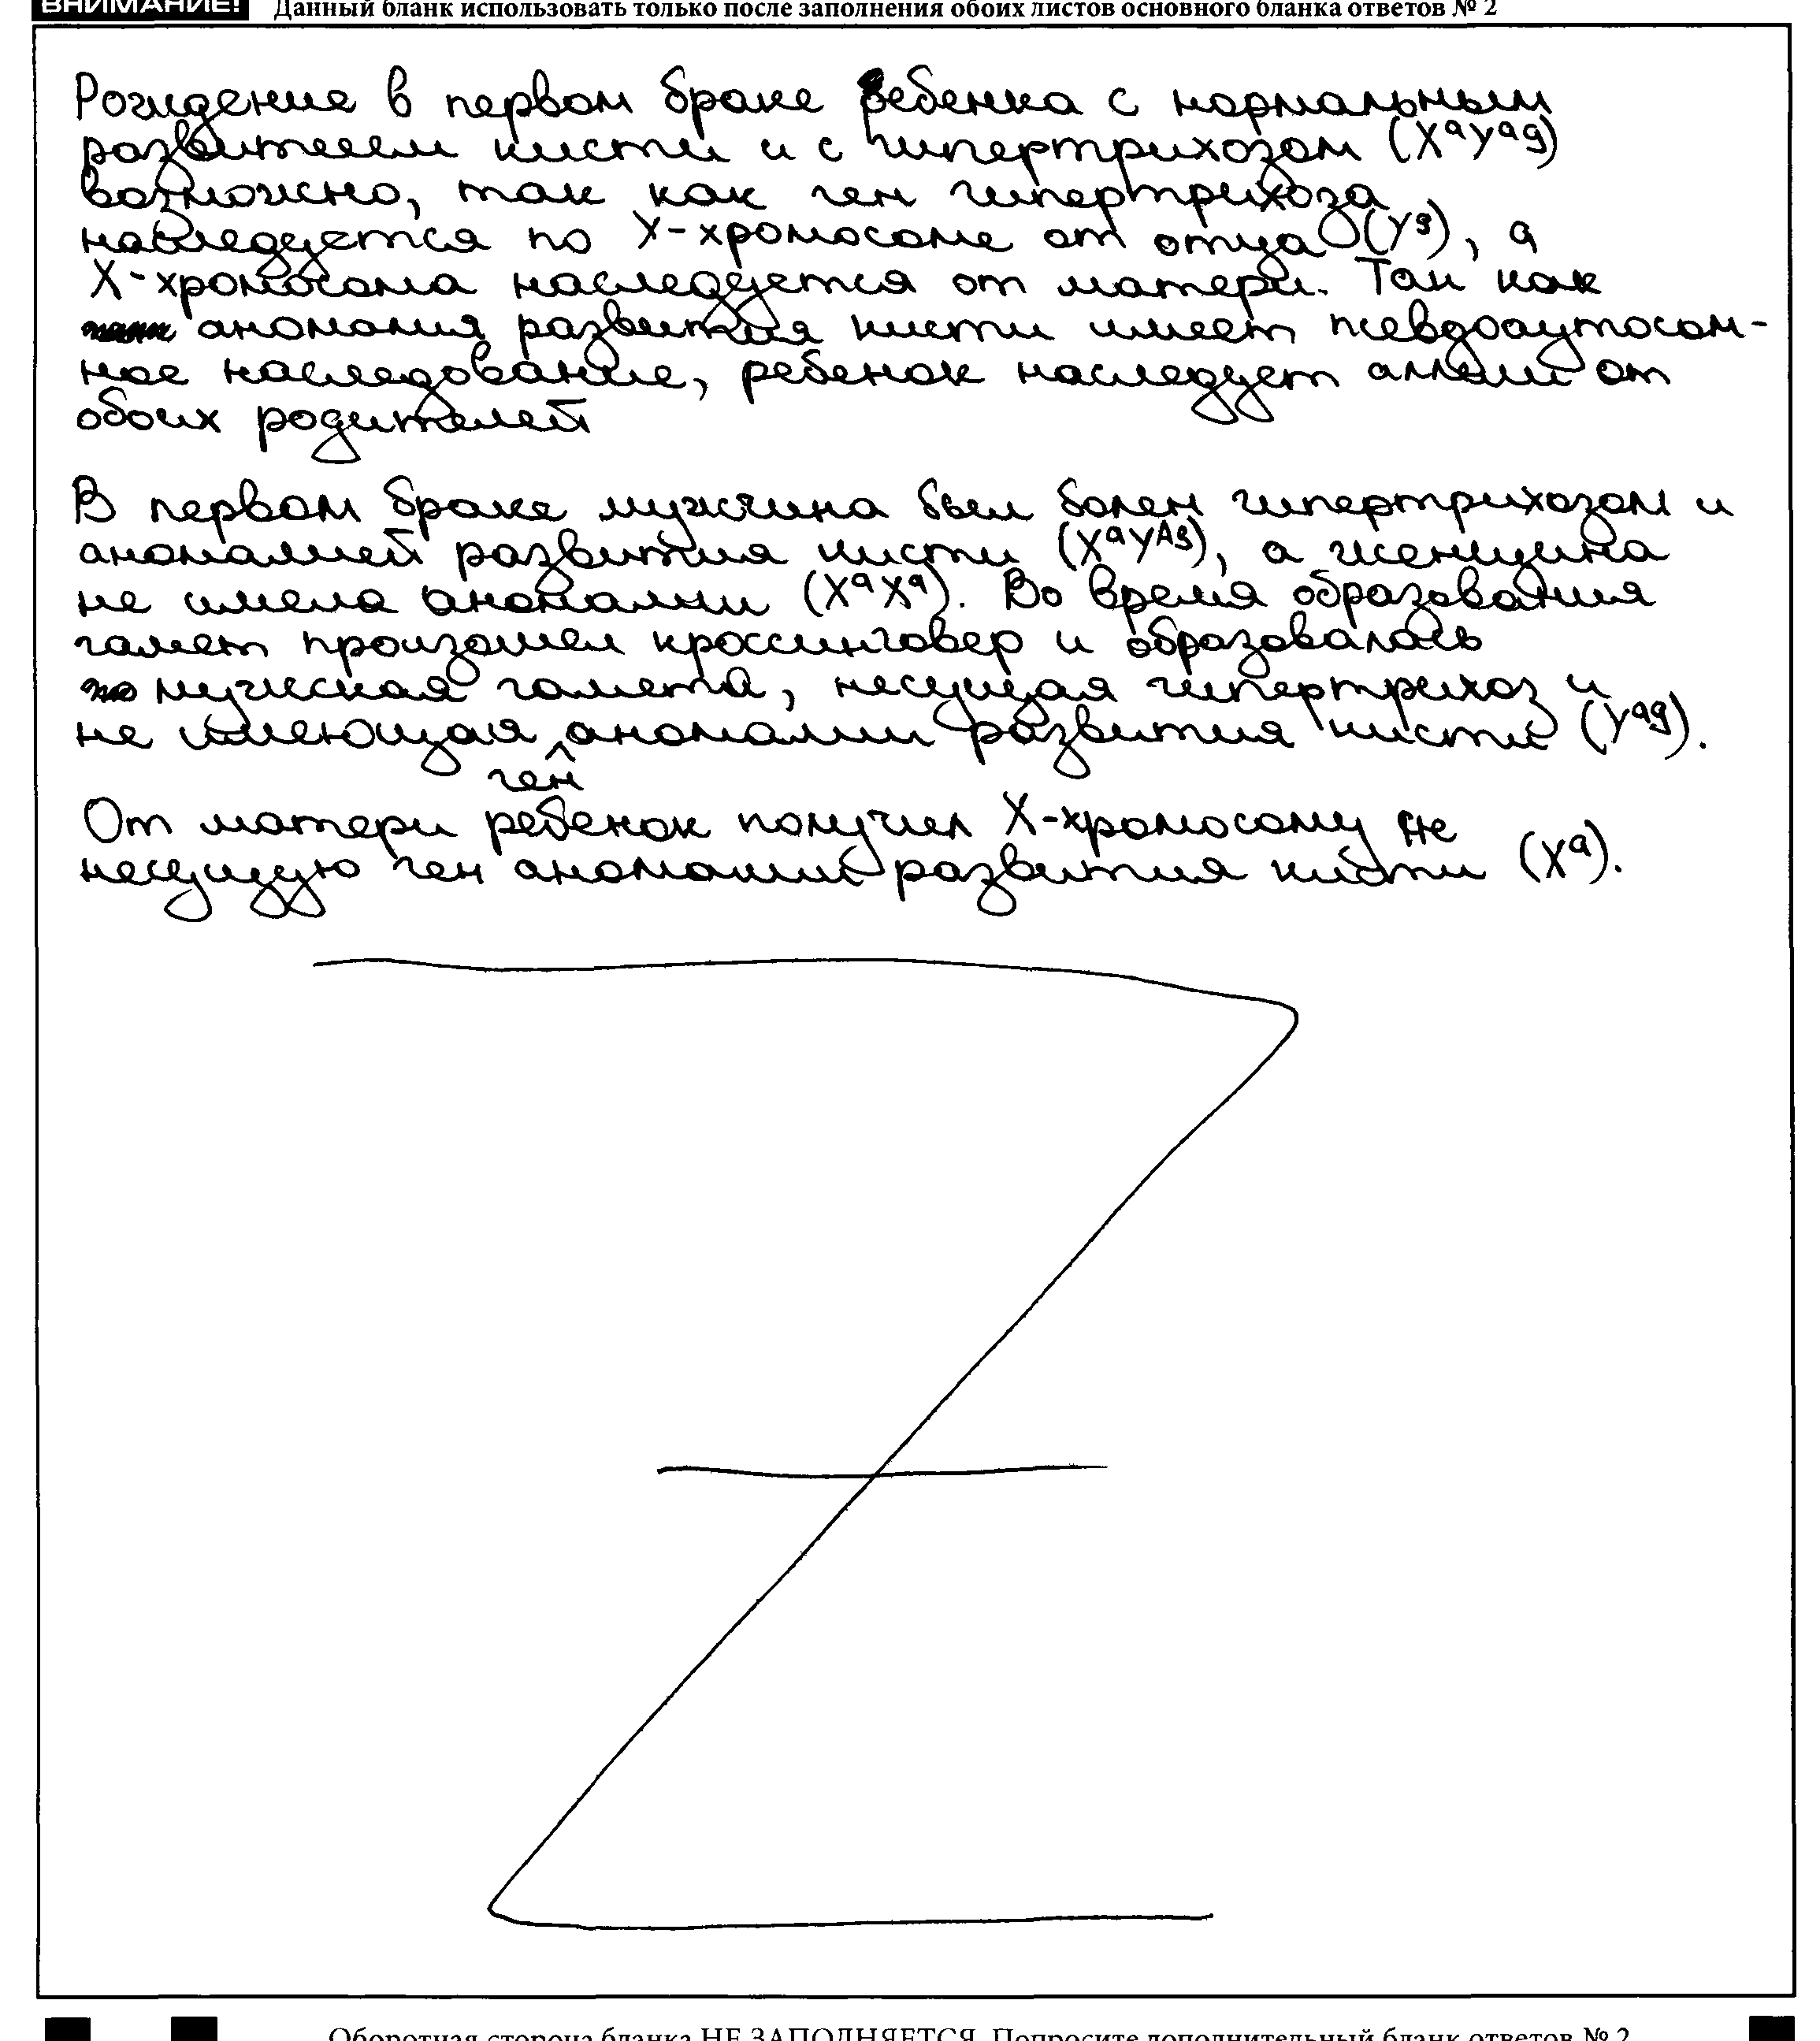 ВНИМАНИЕ! Данный бланк использовать только после заполнения обоих листов основного бланка ответов № 2
Рождение в первом браке ребенка с нормальным
развитием кисти и с гипертрихозом (XᵃYᵃᵍ)
возможно, так как ген гипертрихоза
наследуется по Y-хромосоме от отца (Yᵍ), а
X-хромосома наследуется от матери. Так как
аномалия развития кисти имеет псевдоаутосом-
ное наследование, ребенок наследует аллели от
обоих родителей
В первом браке мужчина был болен гипертрихозом и
аномалией развития кисти (XᵃYᴬᵍ), а женщина
не имела аномалии (XᵃXᵃ). Во время образования
гамет произошел кроссинговер и образовалась
мужская гамета, несущая гипертрихоз и
не имеющая ген аномалии развития кисти (Yᵃᵍ).
От матери ребенок получил X-хромосому не
несущую ген аномалии развития кисти (Xᵃ).
Оборотная сторона бланка НЕ ЗАПОЛНЯЕТСЯ. Попросите дополнительный бланк ответов № 2